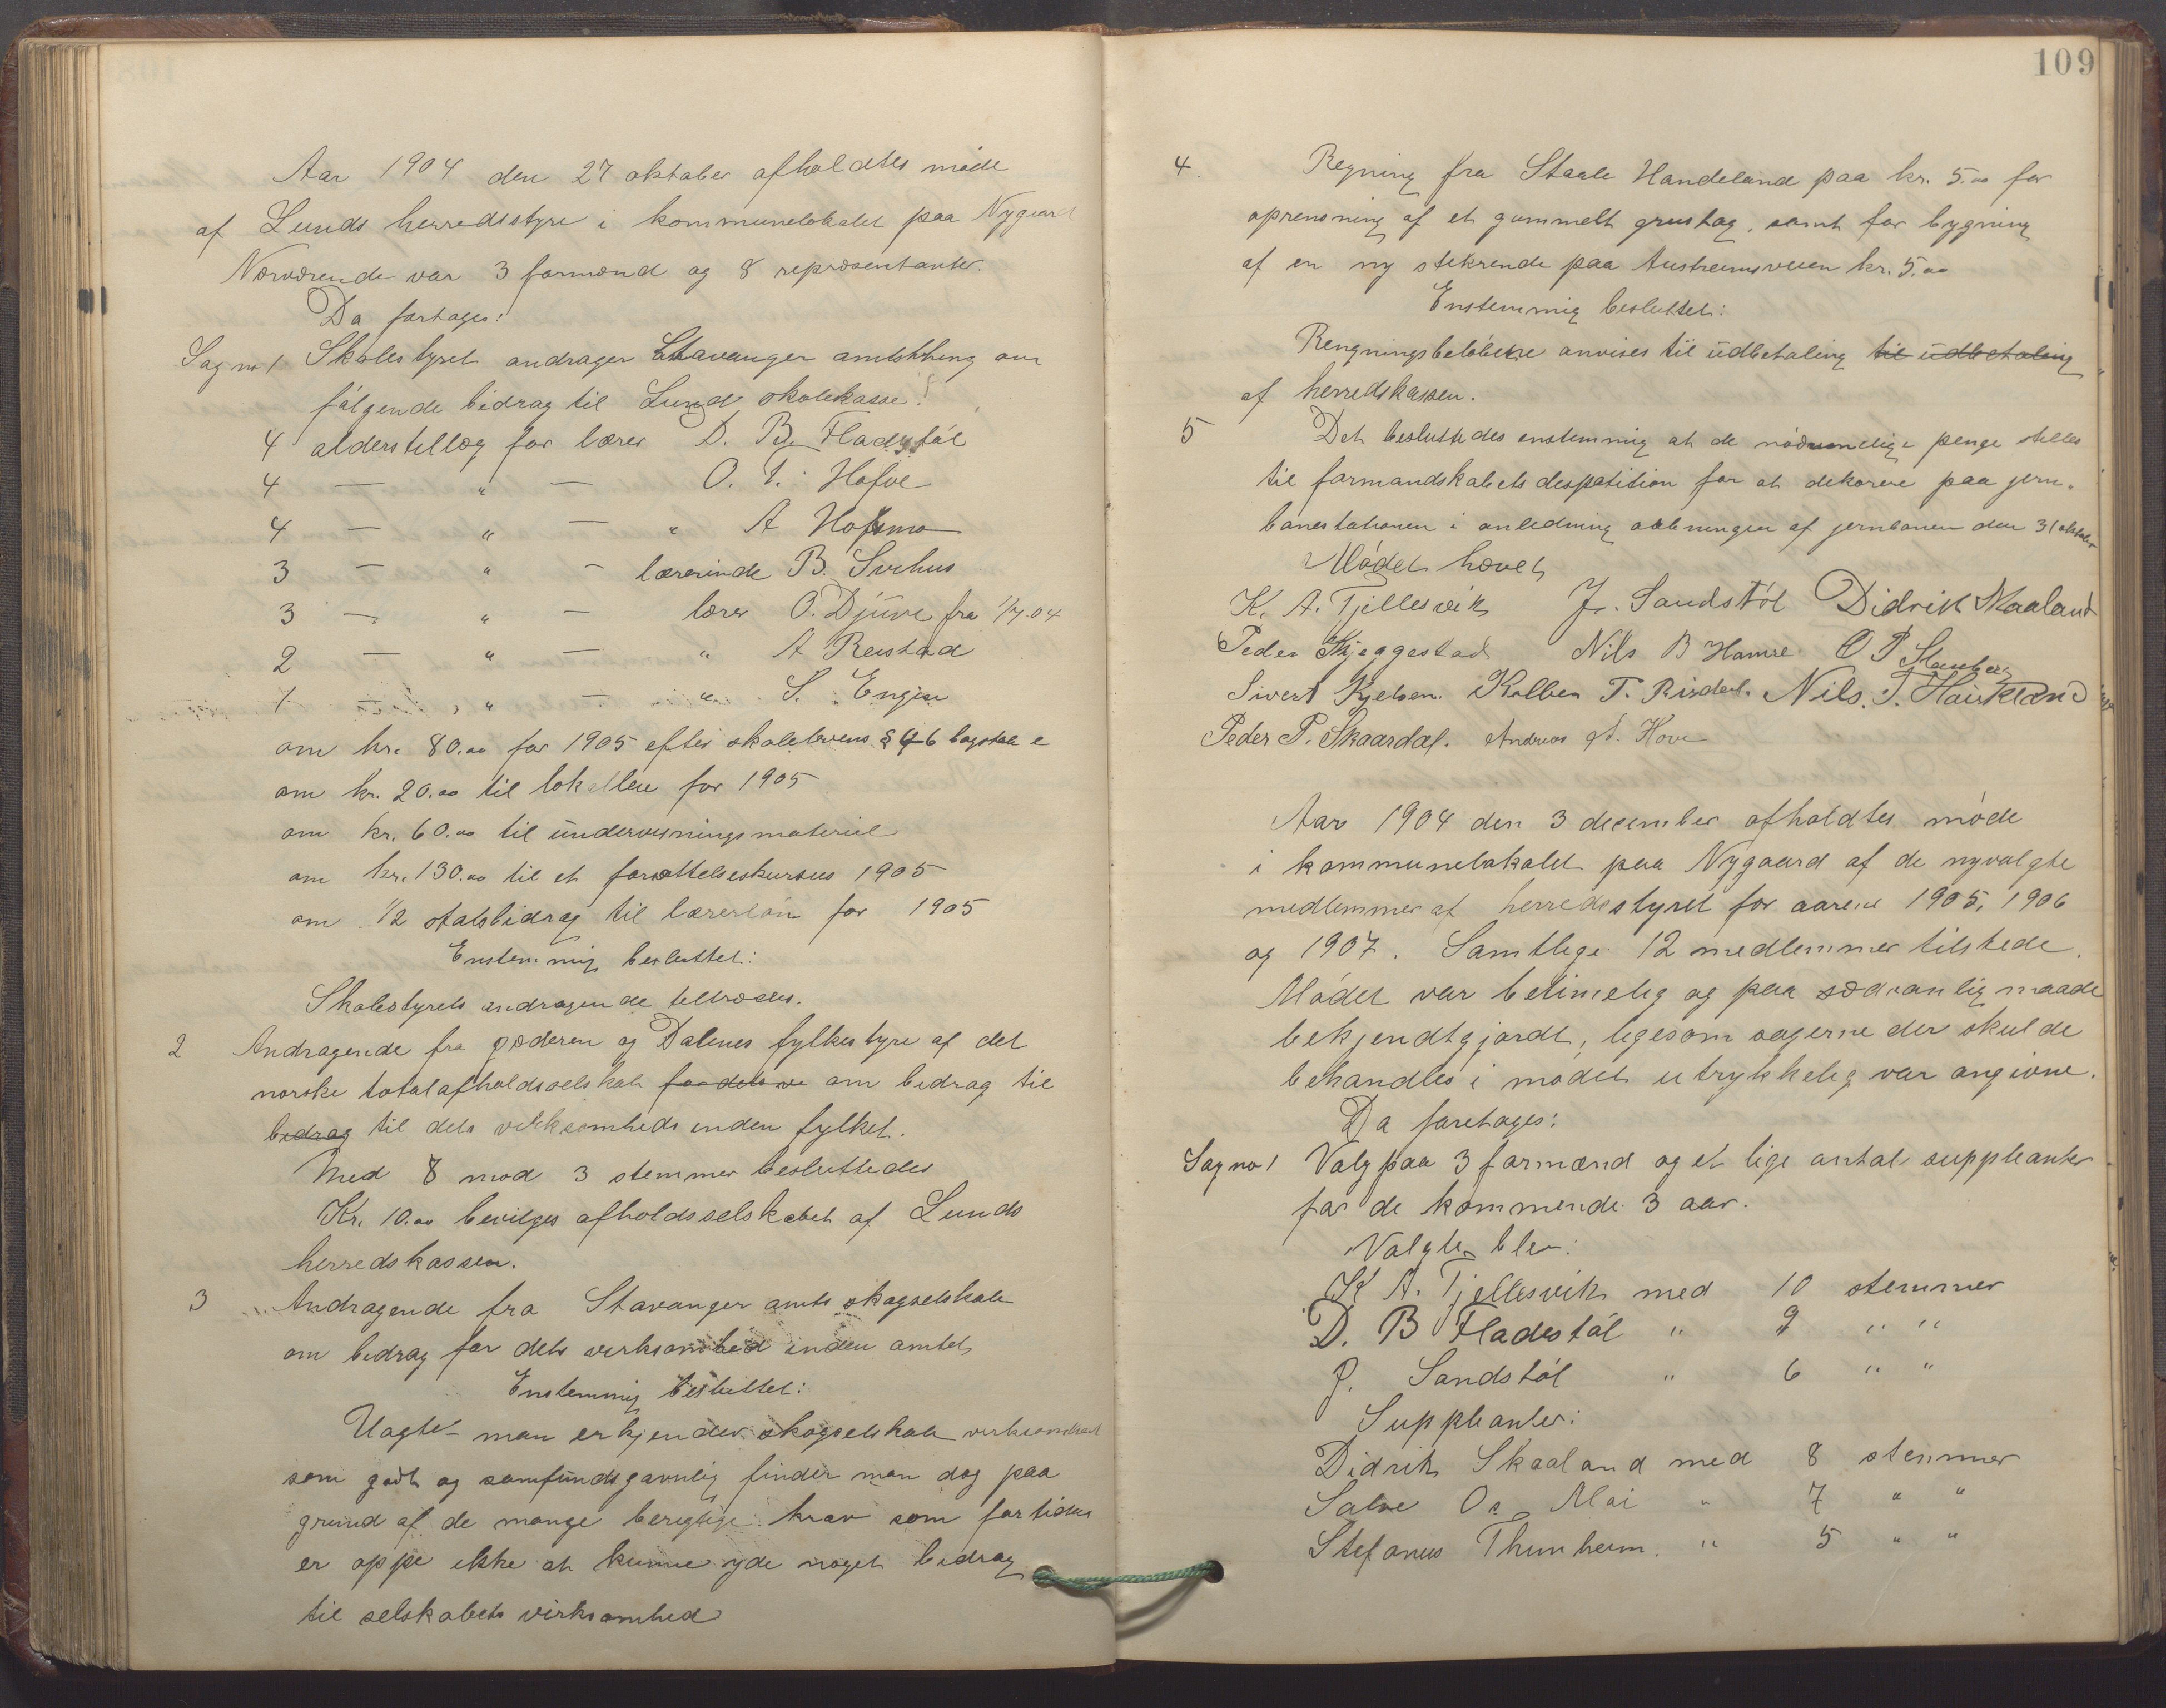 Aar 1904 den 27 oktober afholdtes møde
af Lunds herredsstyre i kommunelokalet paa Nygaard
Nærværende var 3 formænd og 8 repræsentanter.
Da fortages:
Sag no 1 Skolestyret andrager Stavanger amtsthing om
følgende bidrag til Lund skolekasse:
4 alderstillæg for lærer D. B. Fladstøl
4 — " — O. T. Hofve
4 — " — " A Hofsmo
3 — " — lærerinde B. Svehus
3 — " — lærer O. Djuve fra 1/7.04
2 — " — " A Reistad
1 — " — " S. Engen
om kr. 80.00 for 1905 efter skolelovens § 6 bogstav e
om kr. 20.00 til lokalleie for 1905
om kr. 60.00 til undervisningsmateriel
om kr. 130.00 til et forsættelseskursus 1905
om 1/2 statsbidrag til lærerløn for 1905
Enstemmig besluttet:
Skolestyrets andragende tiltrædes.
2 Andragende fra Jæderen og Dalenes fylkestyre af det
norske totalafholdsselskab for dets ve om bedrag til
bedrag til dets virksomheds inden fylket.
Med 8 mod 3 stemmer besluttedes
Kr. 10.00 bevilges afholdsselskabet af Lunds
herredskassen.
3 Andragende fra Stavanger amts skogselskab
om bedrag for dets virksomhed inden amtet
Enstemmig besluttet:
Uagtet man erkjender skogselskab virksomhed
som godt og samfundsgavnlig finder man dog paa
grund af de mange berigtige krav som for tiden
er oppe ikke at kunne yde noget bedrag
til selskabets virksomhed
109
4. Regning fra Staale Handeland paa kr. 5.00 for
oprensning af et gammelt grustag, samt for bygning
af en ny stikrende paa Austrumsveien kr. 5.00
Enstemmig besluttet:
Rengningsbeløbene anvises til udbetaling til udbetaling
af herredskassen.
5 Det besluttedes enstemmig at de nødvendige penge stilles
til formandskabets despotition for at dekorere paa jern-
banestationen i anledning aabningen af jernbanen den 31 oktober
Mødet hævet
K. A. Tjellesvik J. Sandstøl Didrik Skaaland
Peder Skjeggestad Nils B Hamre O P Stenberg
Sivert Kjelsen. Kolben T. Risdal. Nils. T. Haukland
Peder P. Skaardal. Andreas Hove
Aar 1904 den 3 december afholdtes møde
i kommunelokalet paa Nygaard af de nyvalgte
medlemmer af herredsstyret for aarene 1905, 1906
og 1907. Samtlige 12 medlemmer tilstede.
Mødet var betimelig og paa sædvanlig maade
bekjendtgjordt, ligesom sagerne der skulde
behandles i mødet utrykkelig var angivne.
Da foretages:
Sag no 1 Valg paa 3 formænd og et lige antal suppleanter
for de kommende 3 aar.
Valgte blev:
K A. Tjellesvik med 10 stemmer
D. B Fladestøl " 9 " "
J. Sandstøl " 6 " "
Suppleanter:
Didrik Skaaland med 8 stemmer
Salve O. Moi " 7 " "
Stefanus Thunheim. " 5 " "